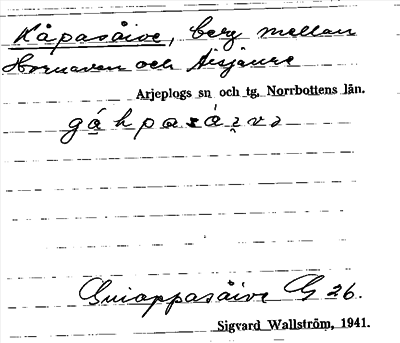 Kåpasåive, berg mellan
Hornavan och Aisjaure
Arjeplogs sn och tg, Norrbottens län.
gáhpasáivə
Guiappasåive G 26.
Sigvard Wallström, 1941.